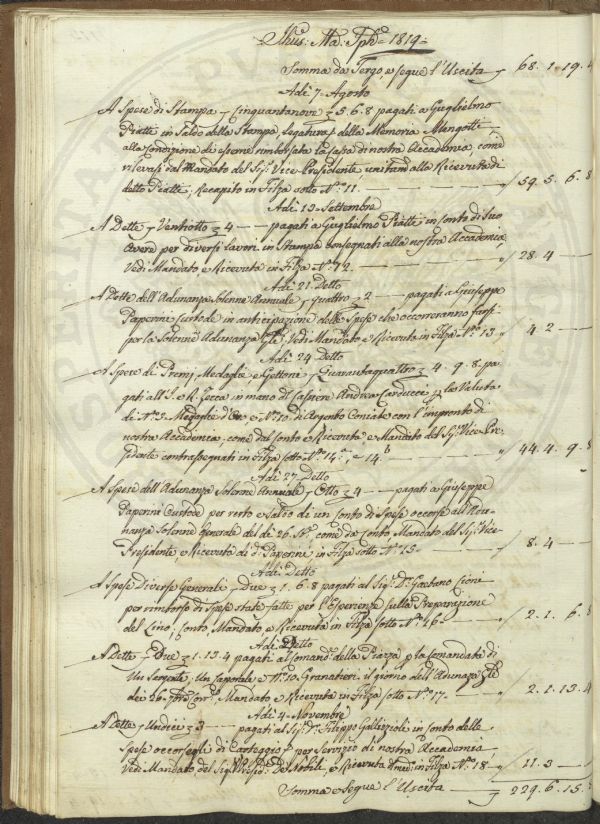 Jhus: Ma: Jph: 1819
Somma da Tergo, e segue l'Uscita 68. 1. 19. 4
Adì 7. Agosto
A Spese di Stampa Cinquantanove 5. 6. 8 pagati a Guglielmo
Piatti in Saldo della Stampa, Legatura, della Memoria Mengotti
alla condizione di esserne rimborsata la Cassa di nostra Accademia, come
rilevasi dal Mandato del Sig. Vice-Presidente unitam. alla Ricevuta di
detto Piatti, Recapito in Filza sotto N. 11. 59. 5. 6. 8
Adì 13. Settembre
A Dette Ventiotto 4 pagati a Guglielmo Piatti in Conto di Suo
Avere per diversi lavori in Stampa consegnati alla nostra Accademia
Vedi Mandato e Ricevuta in Filza N. 12. 28. 4
Adì 21. Detto
A Dette dell'Adunanza Solenne Annuale, Quattro 2 pagati a Giuseppe
Paperini Custode in anticipazione delle Spese che occorreranno farsi
per la Solenne Adunanza, Vedi Mandato e Ricevuta in Filza N. 13 4. 2
Adì 24 Detto
A Spese di Premj Medaglie, e Gettoni, Quarantaquattro 4. 9. 8 pa-
gati all'I. e R. Zecca in mano del Cassiere Andrea Carducci la Valuta
di N. Medaglie d'Oro, e N. 10. di Argento Coniate con l'impronto di
nostra Accademia, come dal Conto e Ricevuta e Mandato del Sig. Vice-Pre-
sidente contrassegnati in Filza sotto N. 14 a, e 14 b 44. 4. 9. 8
Adì 27. Detto
A Spese dell'Adunanza Solenne Annuale, Otto 4 pagati a Giuseppe
Paperini Custode per resto e Saldo di un Conto di Spese occorse all'Adu-
nanza Solenne Generale del dì 26. come da Conto, Mandato del Sig. Vice-
Presidente, e Ricevuta di d. Paperini in Filza sotto N. 15. 8. 4
Adì Detto
A Spese Diverse Generali, Due 1. 6. 8 pagati al Sig. D. Gaetano Cioni
per rimborso di Spese state fatte per l'Esperienze sulla Preparazione
del Lino: Conto, Mandato, e Ricevuta in Filza sotto N. 16. 2. 1. 6. 8
Adì Detto
A Dette Due 1. 13. 4 pagati al Comand. della Piazza p. la Comandata di
Un Sergente, Un Caporale e N. 10. Granatieri il giorno dell'Adunanza
dei 26. Mandato e Ricevuta in Filza sotto N. 17. 2. 1. 13. 4
Adì 4. Novembre
A Dette Undici 3 pagati al Sig. D. Filippo Gallizioli in Conto delle
Spese occorsegli di Carteggio per Servizio di nostra Accademia,
Vedi Mandato del Sig. De Nobili, e Ricevuta in Filza N. 18 11. 3
Somma e Segue l'Uscita 229. 6. 15.